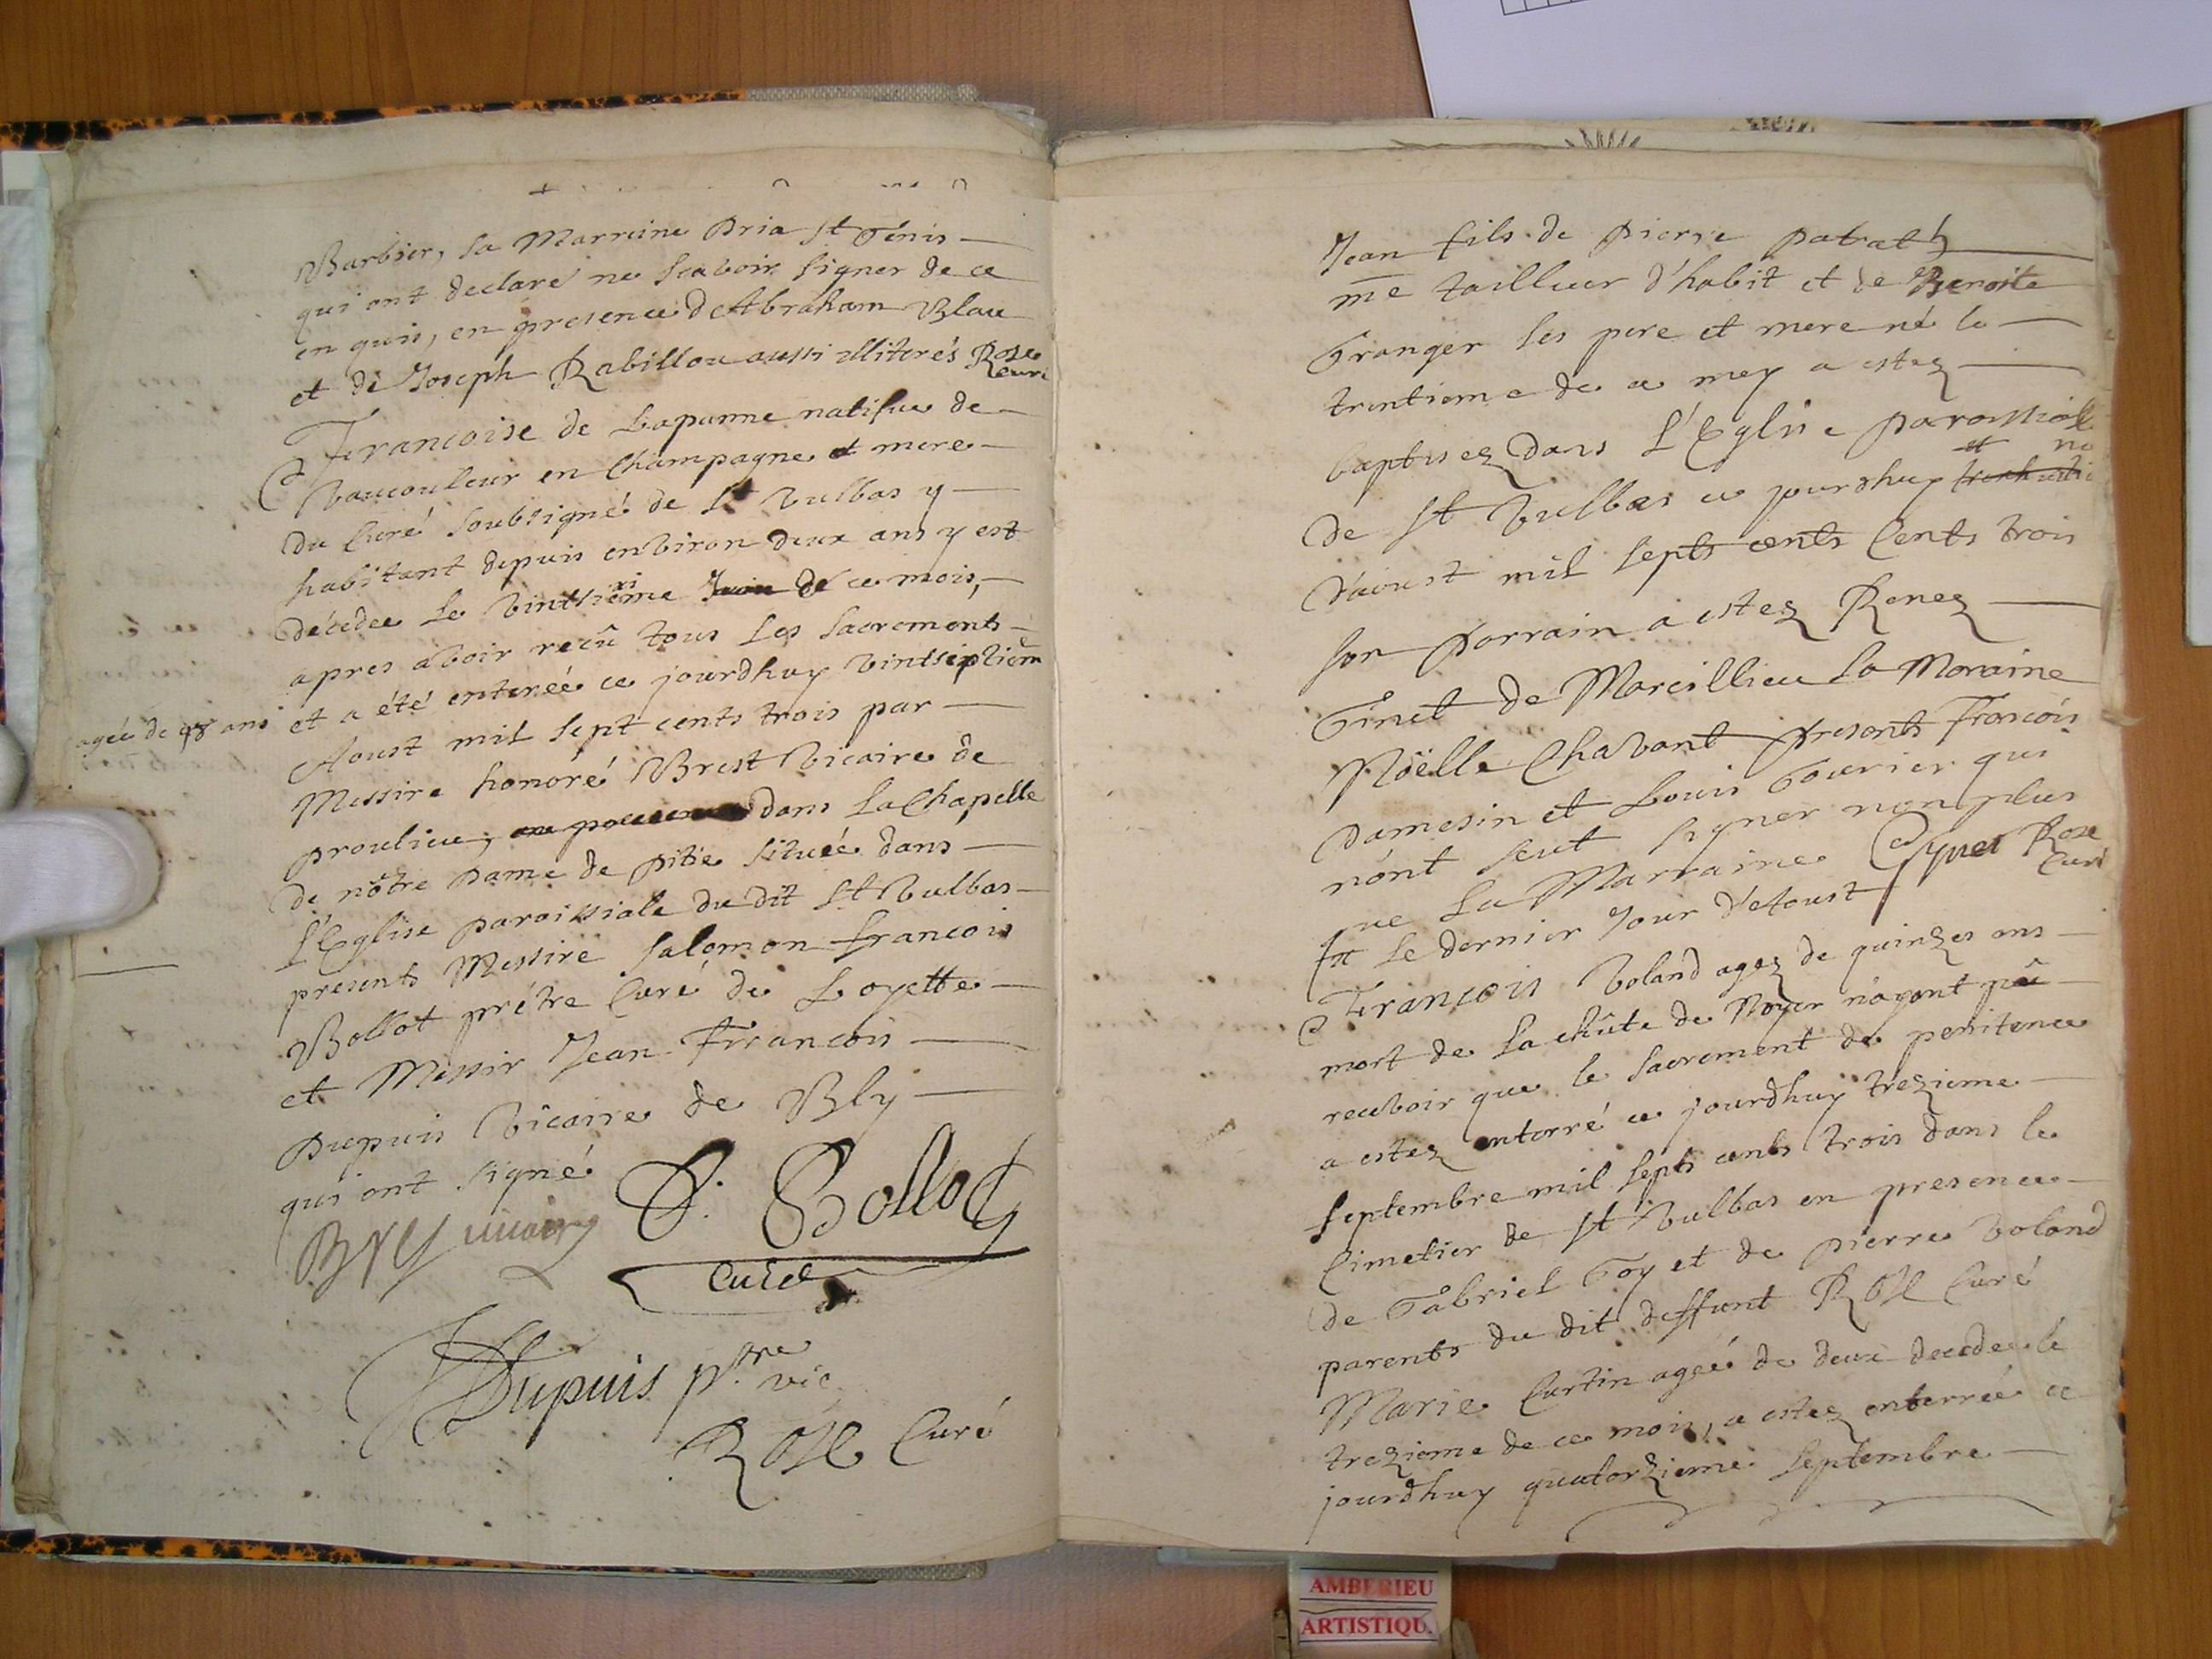 Barbier, la Marreine Pria St Genis
qui ont declaré ne scavoir signer de ce
en quis, en presence d'Abraham Blau
et de Joseph Rabillou aussi illiterés Rose
Curé
Francoise de Lapanne natifue de
Vaucouleur en Champagne et mere
du Curé soubsigné de St Vulbas y
habitant depuis environ deux ans y est
décedee le vintsixieme Juin de ce mois,
apres avoir recû tous les sacrements
et a été enterée ce jourdhuy vintseptiem
agée de 78 ans
Aoust mil sept cents trois par
Messire honoré Brest Vicaire de
proulieu, dans la Chapelle
de nôtre Dame de pitie située dans
l'Eglise paroissiale du dit St Vulbas
presents Messire Salomon francois
Bollot prétre Curé de Loyette
et Messir Jean Francois
Dupuis Vicaire de Bly
qui ont signé
S. Bollot
Brest vicaire
Curé
JDupuis ptre vic
Rose Curé
Jean fils de Pierre patrat
me tailleur d'habit et de Benoite
Granger ses pere et mere né le
trentieme de ce mey a estez
baptisez dans l'Eglise paroissiale
et
de St Vulbas ce jourdhuy
d'aoust mil septs cents Cents trois
son parrain a estez Renez
Ginet de Marcillieu la Moraine
Nöelle Chavant presents Francois
Damesin et Louis Gourier qui
n'ont seut signer non plus
que La Marraine
Rose
Curé
le dernier Jour d'Aoust
Francois Voland agez de quinzes ans
mort de la chûte de Noyer n'ayant pû
recevoir que le sacrement de penitence
a estez enterré ce jourdhuy trezieme
septembre mil septs cents trois dans le
Cimetier de St Vulbas en presence
de Gabriel Goy et de pierre Voland
parents du dit deffunt Rose Curé
Marie Curtin ageé de deux decedee le
trezieme de ce mois, a estez enterreé ce
jourdhuy quatorzieme septembre
AMBERIEU
ARTISTIQU